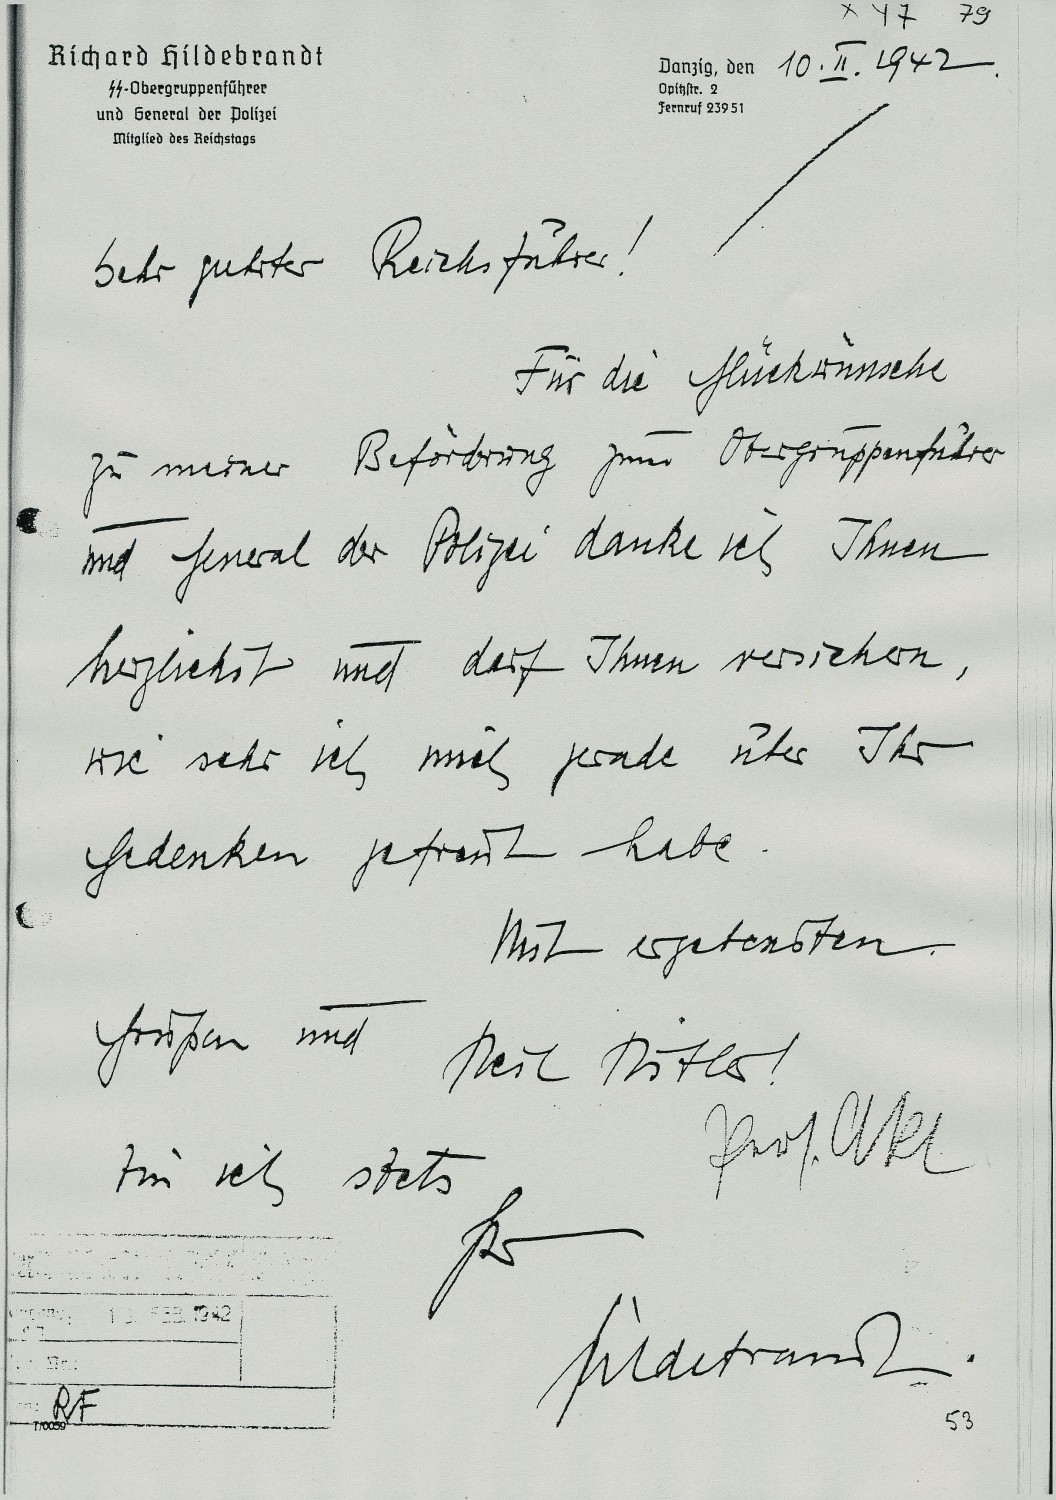 x Y7 79
Richard Hildebrandt
SS-Obergruppenführer
und General der Polizei
Mitglied des Reichstags
Danzig, den 10. II. 1942.
Opitzstr. 2
Fernruf 23951
Sehr geehrter Reichsführer!
Für die Glückwünsche
zu meiner Beförderung zum Obergruppenführer
und General der Polizei danke ich Ihnen
herzlichst und darf Ihnen versichern,
wie sehr ich mich gerade über Ihr
Gedenken gefreut habe.
Mit ergebensten
Grüßen und Heil Hitler!
bin ich stets
Ihr
Hildebrandt.
FEB. 1942
RF
T/0059
53